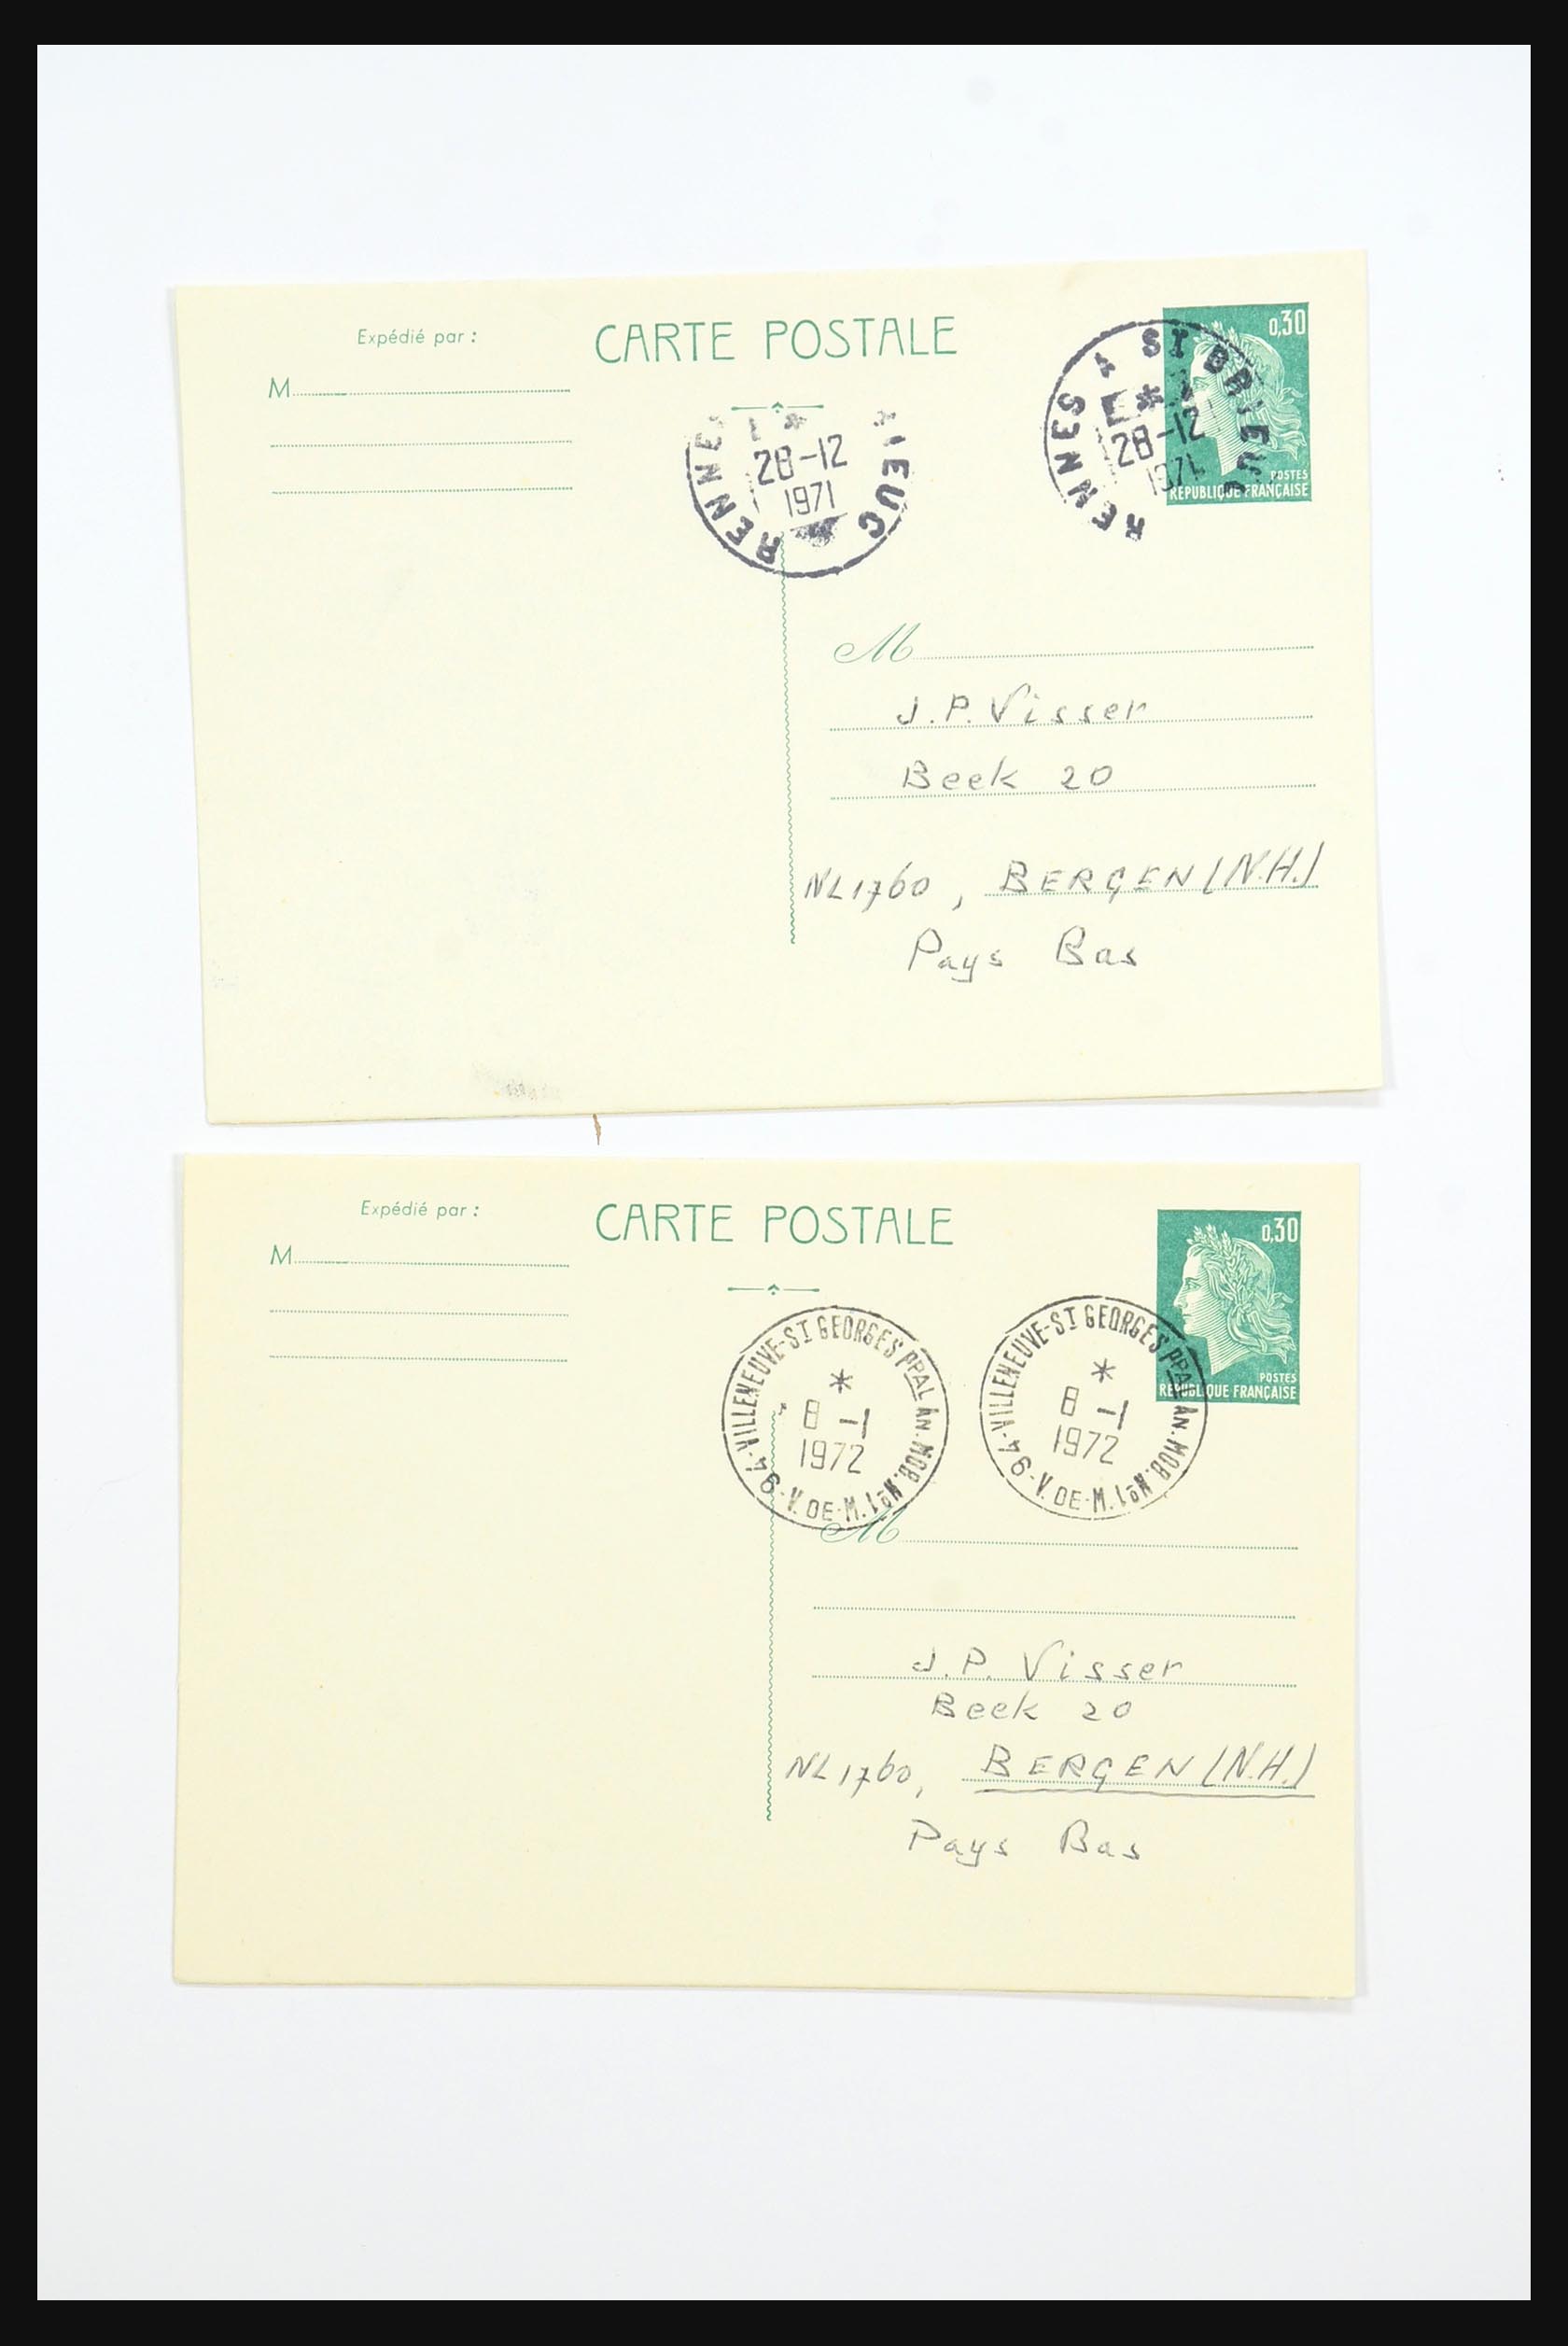 Expédié par :
CARTE POSTALE
0,30
M
RENNES A ST BRIEUC
28-12
1971
RENNE IEUC
28-12
1971
POSTES
RÉPUBLIQUE FRANÇAISE
M
J.P. Visser
Beek 20
NL1760, BERGEN (N.H.)
Pays Bas
Expédié par :
CARTE POSTALE
0,30
M
94-VILLENEUVE-ST GEORGES PPAL AN. MOB. No1 V. DE-M.
*
8 -1
1972
94-VILLENEUVE-ST GEORGES PPAL AN. MOB. No1 V. DE-M.
*
8 -1
1972
POSTES
RÉPUBLIQUE FRANÇAISE
M
J.P. Visser
Beek 20
NL1760, BERGEN (N.H.)
Pays Bas